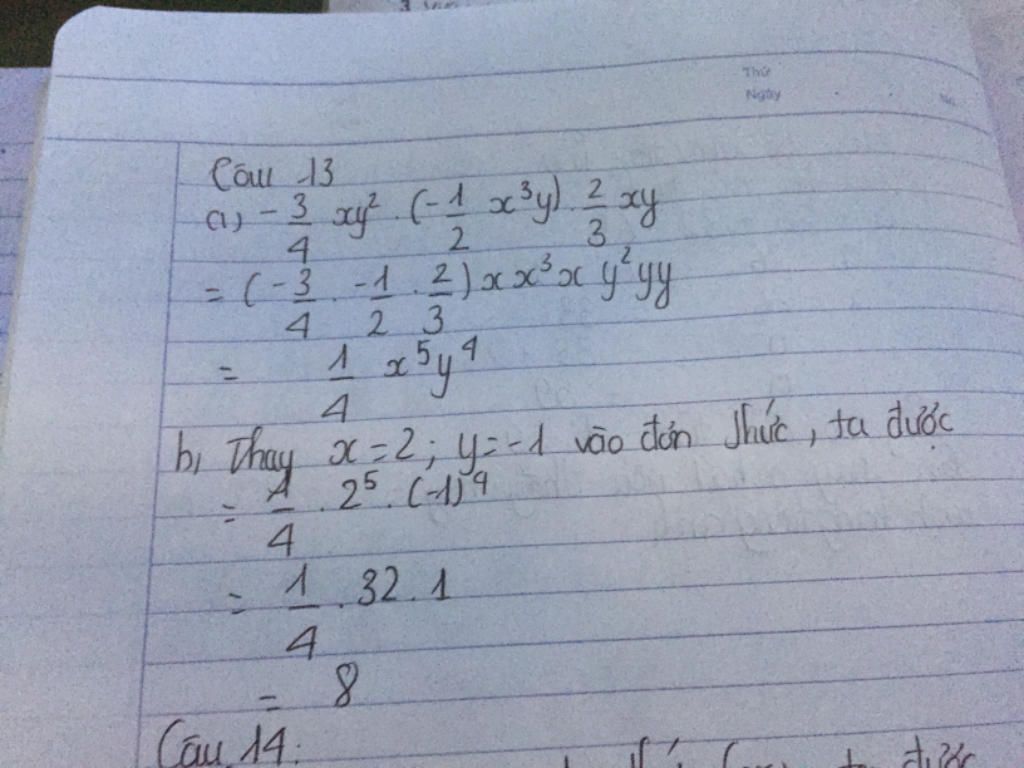 Thứ
Ngày
No.
Câu 13
a) -3/4 xy² . (-1/2 x³y) . 2/3 xy
= (-3/4 . -1/2 . 2/3) x x³ x y² y y
= 1/4 x⁵y⁴
b, Thay x = 2 ; y = -1 vào đơn thức, ta được
= 1/4 . 2⁵ . (-1)⁴
= 1/4 . 32 . 1
= 8
Câu 14:
ta được